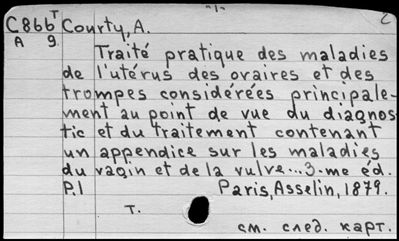 -1-
C866 T Courty, A.
A 9.
Traité pratique des maladies
de l'utérus des ovaires et des
trompes considérées principale-
ment au point de vue du diagnos
tic et du traitement contenant
un appendice sur les maladies
du vagin et de la vulve...3-me éd.
P.1 Paris, Asselin, 1879.
т.
см. след. карт.